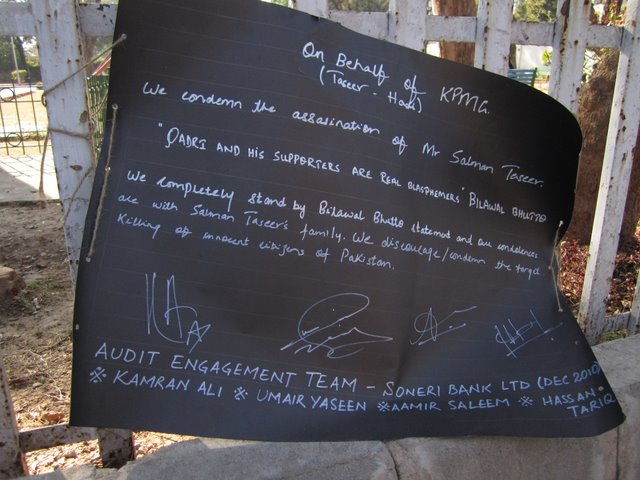 On Behalf of KPMG.
(Taseer - Hadi)
We condemn the assasination of Mr Salman Taseer.
"QADRI AND HIS SUPPORTERS ARE REAL BLASPHEMERS" BILAWAL BHUTTO
We completely stand by Bilawal Bhutto statement and our condolences
are with Salman Taseer's family. We discourage/condemn the target
killing of innocent citizens of Pakistan.
AUDIT ENGAGEMENT TEAM - SONERI BANK LTD (DEC 2010)
※ KAMRAN ALI ※ UMAIR YASEEN ※ AAMIR SALEEM ※ HASSAN
TARIQ